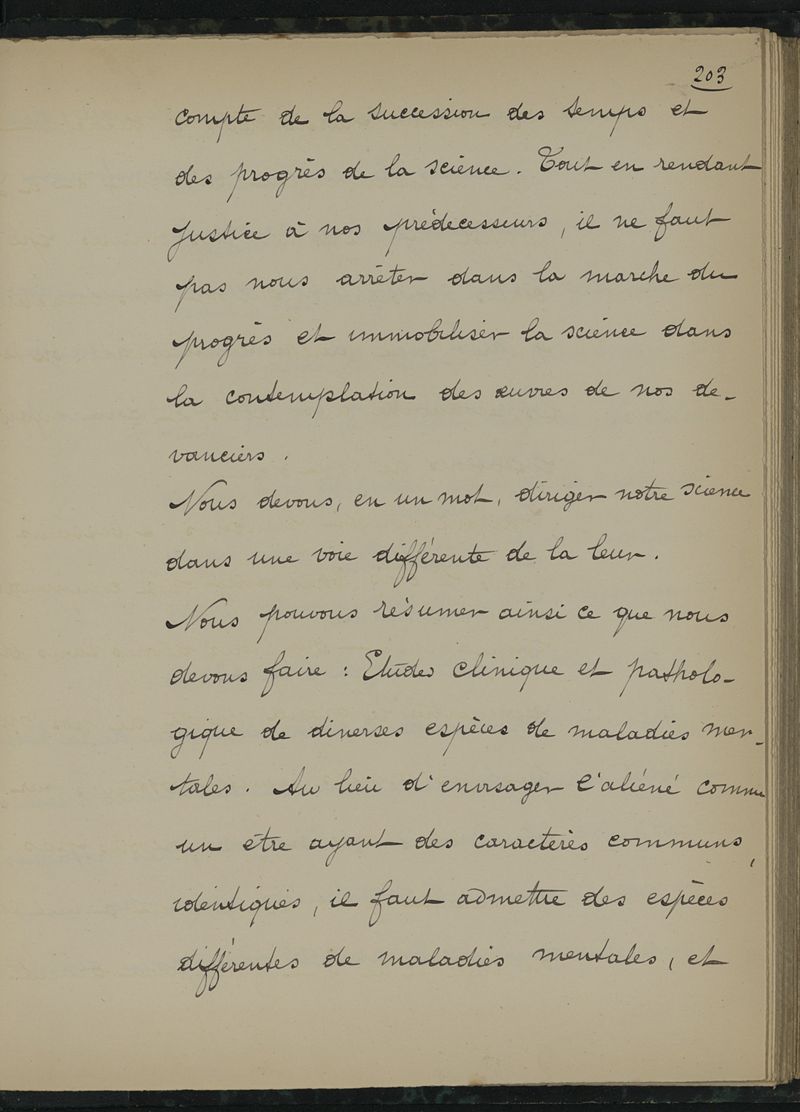 203
compte de la succession des temps et
des progrès de la science. Tout en rendant
justice à nos prédecesseurs, il ne faut
pas nous arrêter dans la marche du
progrès et immobiliser la science dans
la contemplation des œuvres de nos de-
vanciers.
Nous devons, en un mot, diriger notre science
dans une voie différente de la leur.
Nous pouvons résumer ainsi ce que nous
devons faire : Etudes clinique et patholo-
gique de diverses espèces de maladies men-
tales. Au lieu d'envisager l'aliéné comme
un être ayant des caractères communs,
identiques, il faut admettre des espèces
différentes de maladies mentales, et